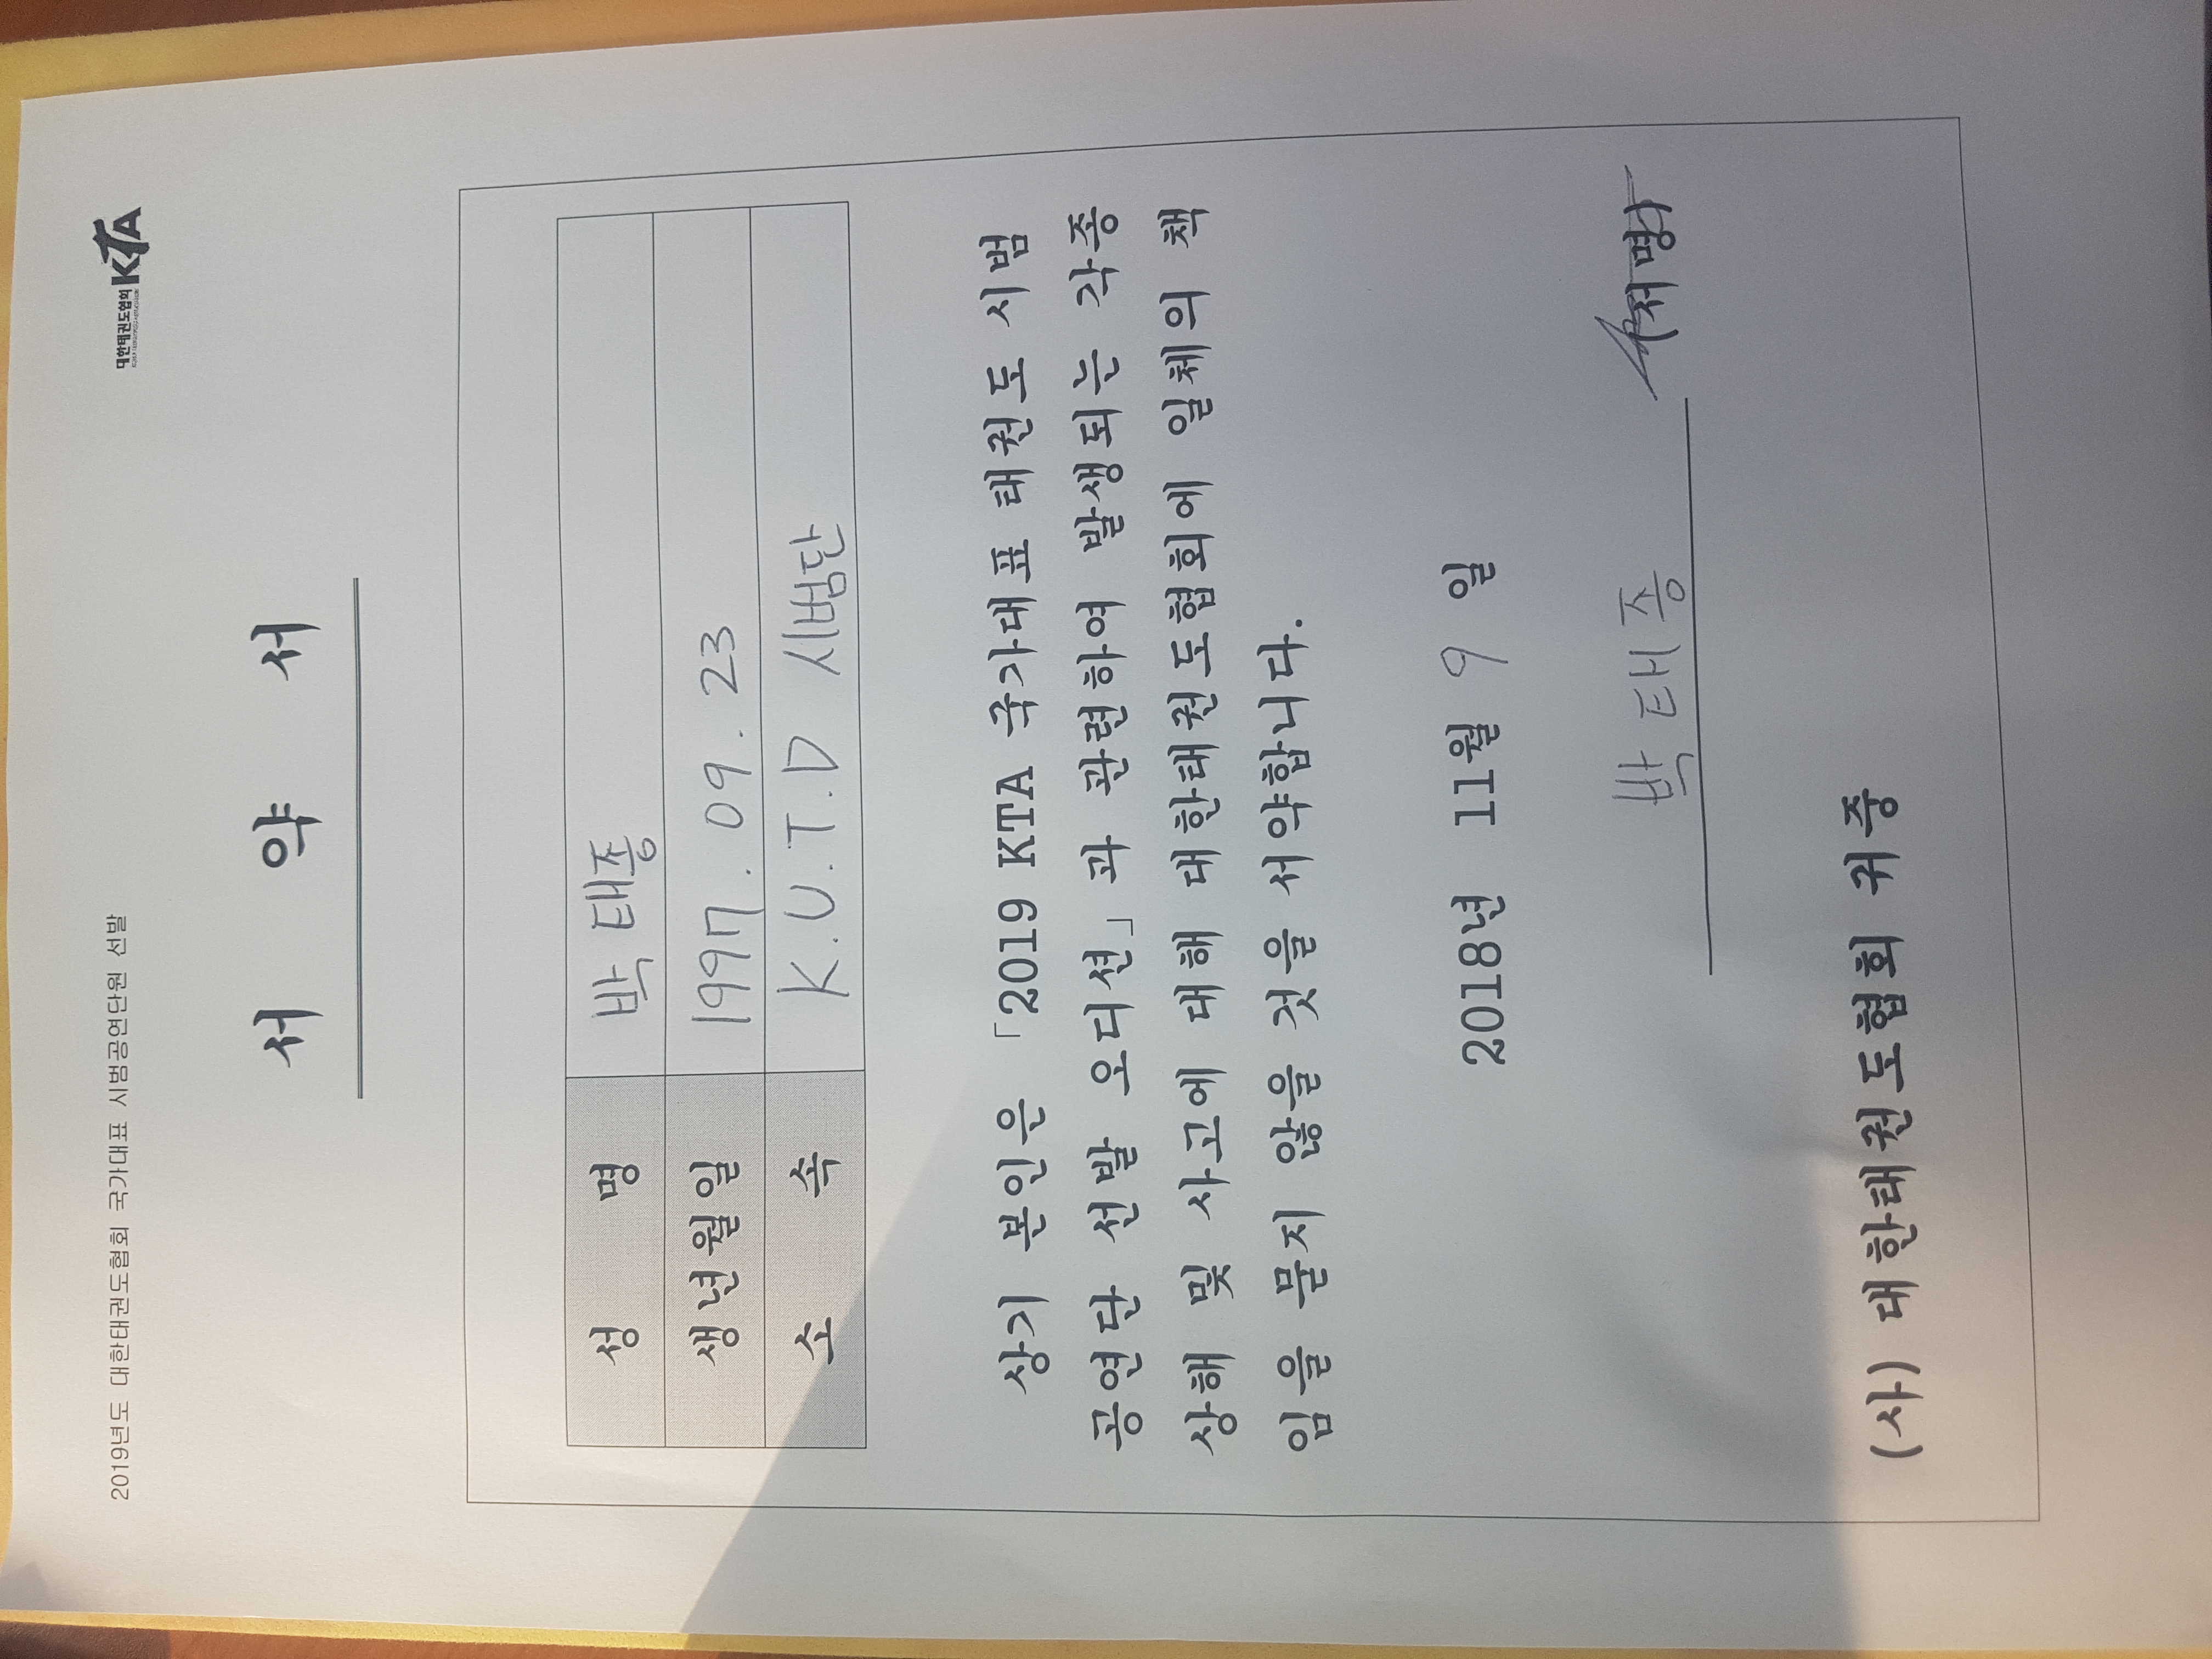 2019년도 대한태권도협회 국가대표 시범공연단원 선발
대한태권도협회 KTA
서 약 서
성 명 박태종
생년월일 1997. 09. 23
소 속 K.U.T.D 시범단
상기 본인은 「2019 KTA 국가대표 태권도 시범
공연단 선발 오디션」과 관련하여 발생되는 각종
상해 및 사고에 대해 대한태권도협회에 일체의 책
임을 묻지 않을 것을 서약합니다.
2018년 11월 9 일
박태종 (서명)
(사) 대한태권도협회 귀중